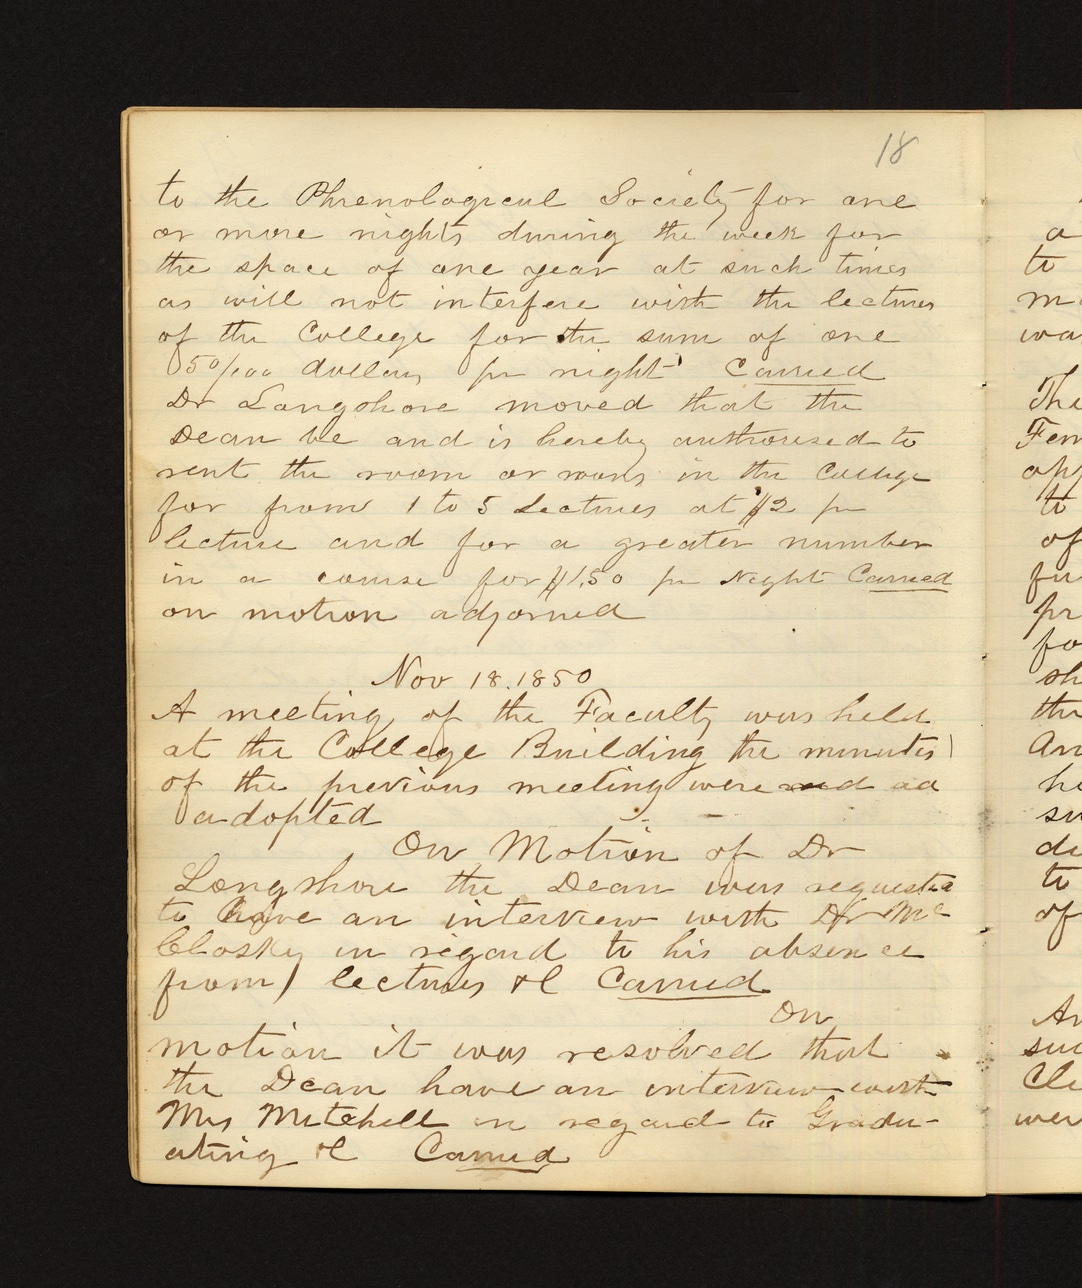 18
to the Phrenological Society for one
or more nights during the week for
the space of one year at such times
as will not interfere with the lectures
of the College for the sum of one
50/100 dollars per night Carried
Dr Longshore moved that the
Dean be and is hereby authorised to
rent the room or rooms in the College
for from 1 to 5 Lectures at $2 per
lecture and for a greater number
in a course for $1,50 per Night Carried
on motion adjorned
Nov 18. 1850
A meeting of the Faculty was held
at the College Building the minutes
of the previous meeting were read ad
adopted
On Motion of Dr
Longshore the Dean was requested
to have an interview with Dr Mc
Closky in regard to his absence
from lectures &c Carried
On
motion it was resolved that
the Dean have an interview with
Mrs Mitchell in regard to Gradu-
ating &c Carried